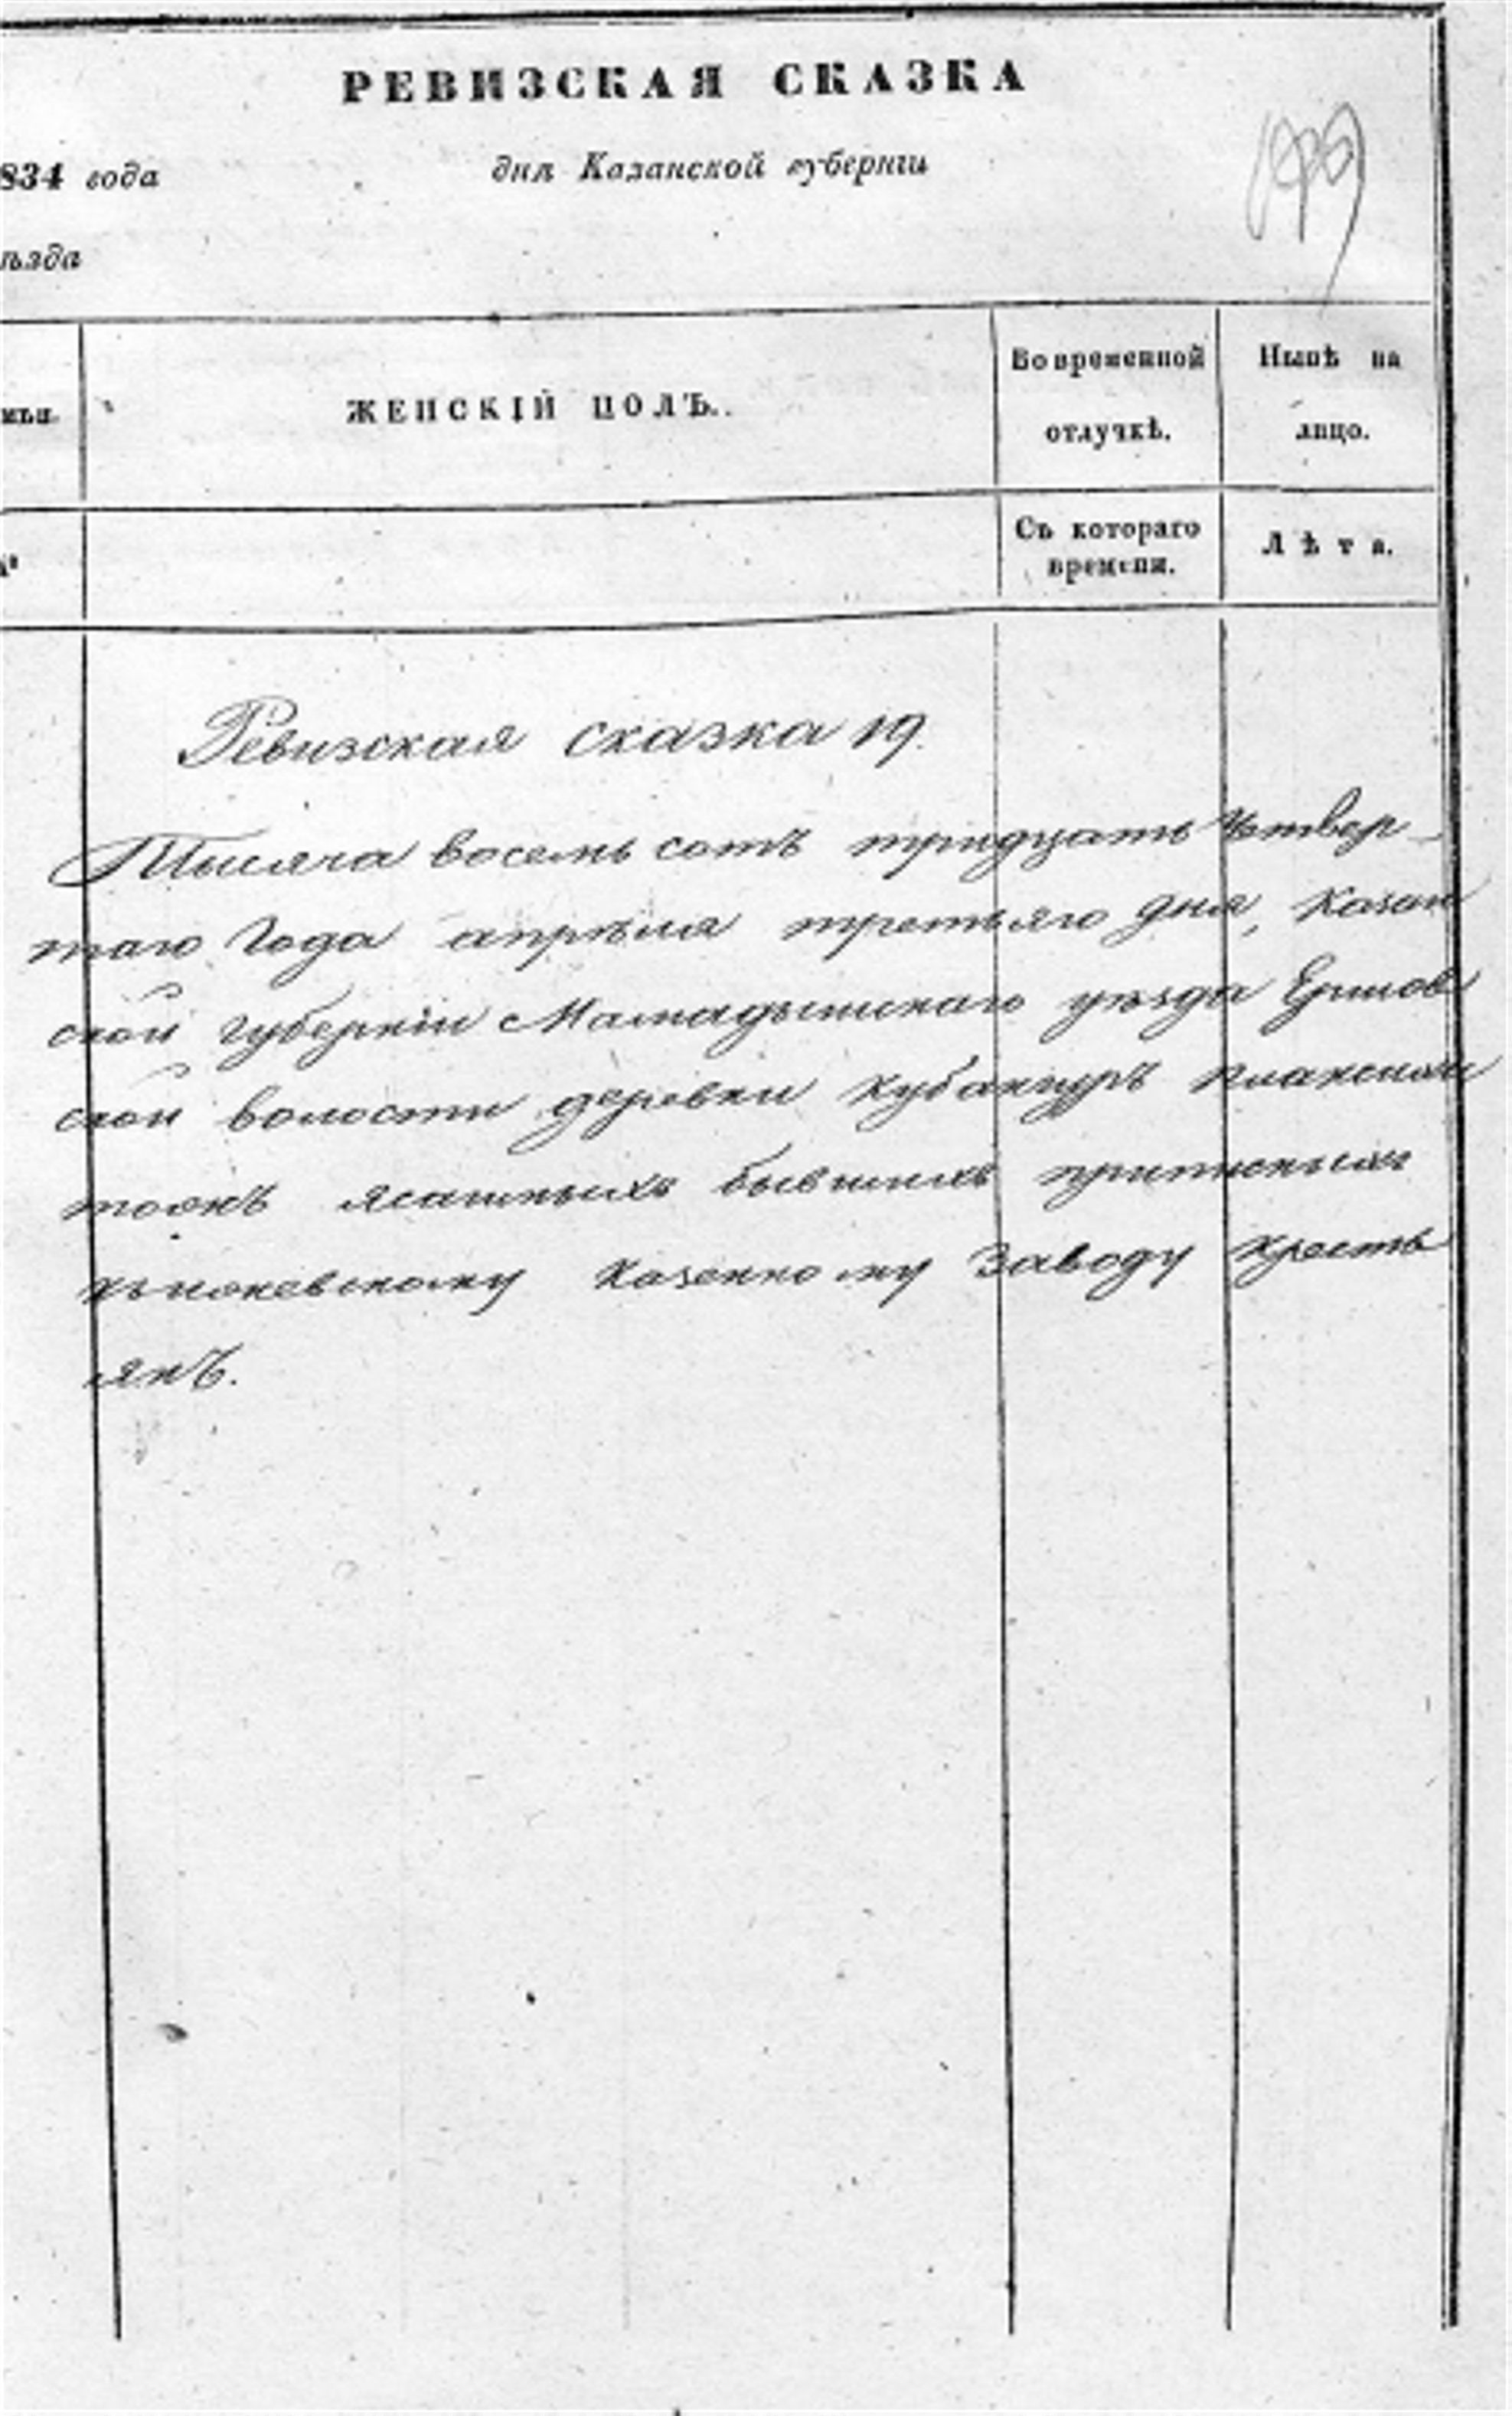 РЕВИЗСКАЯ СКАЗКА
834 года дня Казанской губернiи
ѣзда
ЖЕНСКIЙ ПОЛЪ.
Во временной отлучкѣ.
Нынѣ на лицо.
Съ котораго времени.
Лѣта.
Ревизская сказка 19.
Тысяча восемь сотъ тридцать четвер-
таго Года апрѣля третьяго дня, Казан
ской губернiи Мамадышскаго уѣзда Ершов
ской волости деревни
ясашныхъ бывшихъ
казенному заводу кресть
янъ.